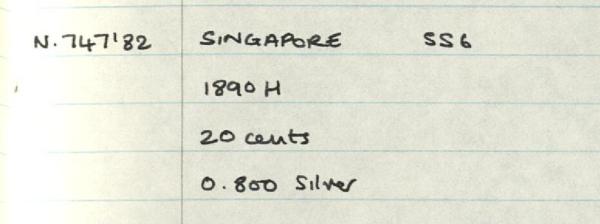 N.747'82 SINGAPORE SS6
1890 H
20 cents
0.800 Silver